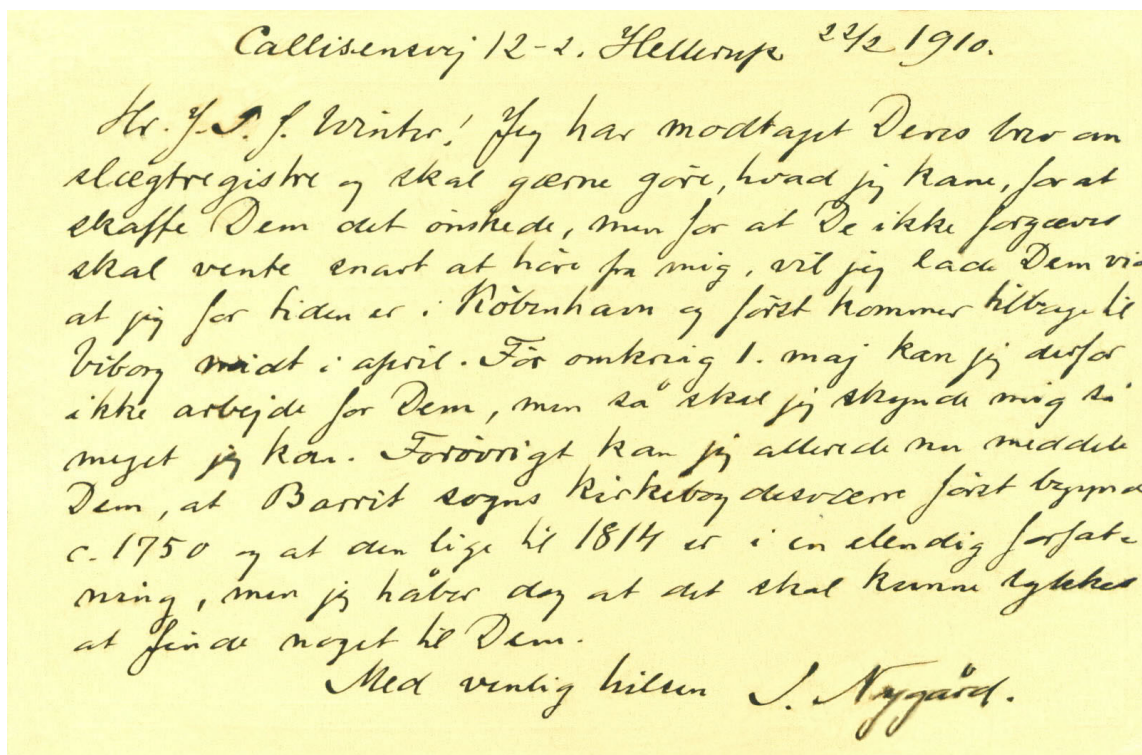 Callisensvej 12-2. Hellerup 22/2 1910.
Hr. J. P. J. Winter! Jeg har modtaget Deres brev om
slægtregistre og skal gærne göre, hvad jeg kan, for at
skaffe Dem det önskede, men for at De ikke forgæves
skal vente snart at höre fra mig, vil jeg lade Dem vide
at jeg for tiden er i Köbenhavn og först kommer tilbage til
Viborg midt i april. För omkring 1. maj kan jeg derfor
ikke arbejde for Dem, men så skal jeg skynde mig så
meget jeg kan. Forövrigt kan jeg allerede nu meddele
Dem, at Barrit sogns kirkebog desværre först begynder
c. 1750 og at den lige til 1814 er i en elendig forfat-
ning, men jeg håber dog at det skal kunne lykkes
at finde noget til Dem.
Med venlig hilsen J. Nygård.